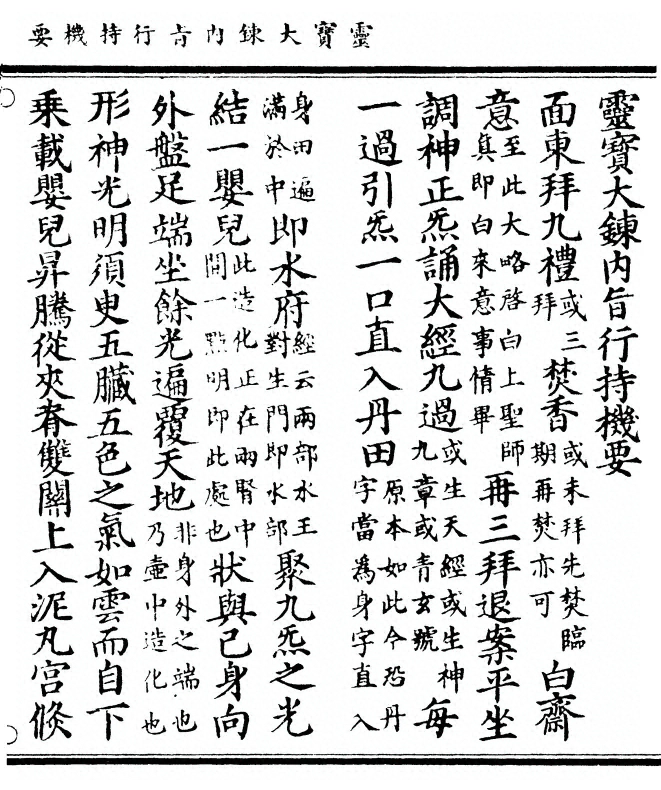 靈寶大鍊内旨行持機要
靈寶大鍊内旨行持機要
面東拜九禮或三拜焚香或未拜先焚臨期再焚亦可白齋
意至此大略啓白上聖師真即白來意事情畢再三拜退案平坐
調神正炁誦大經九過或生天經或生神九章或青玄號每
一過引炁一口直入丹田原本如此今恐丹字當為身字直入
身田遍滿於中即水府經云兩部水王對生門即水部聚九炁之光
結一嬰兒此造化正在兩腎中間一點明即此處也狀與己身向
外盤足端坐餘光遍覆天地非身外之端也乃壷中造化也
形神光明須臾五臟五色之氣如雲而自下
乘載嬰兒昇騰從夾脊雙關上入泥丸宮倐